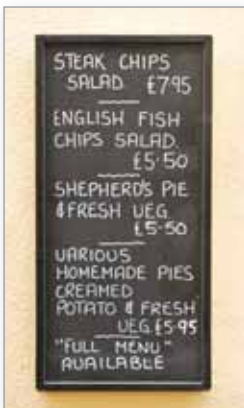 STEAK CHIPS
SALAD £7.95
ENGLISH FISH
CHIPS SALAD
£5.50
SHEPHERD'S PIE
& FRESH VEG
£5-50
VARIOUS
HOMEMADE PIES
CREAMED
POTATO & FRESH
VEG £5.95
"FULL MENU"
AVAILABLE